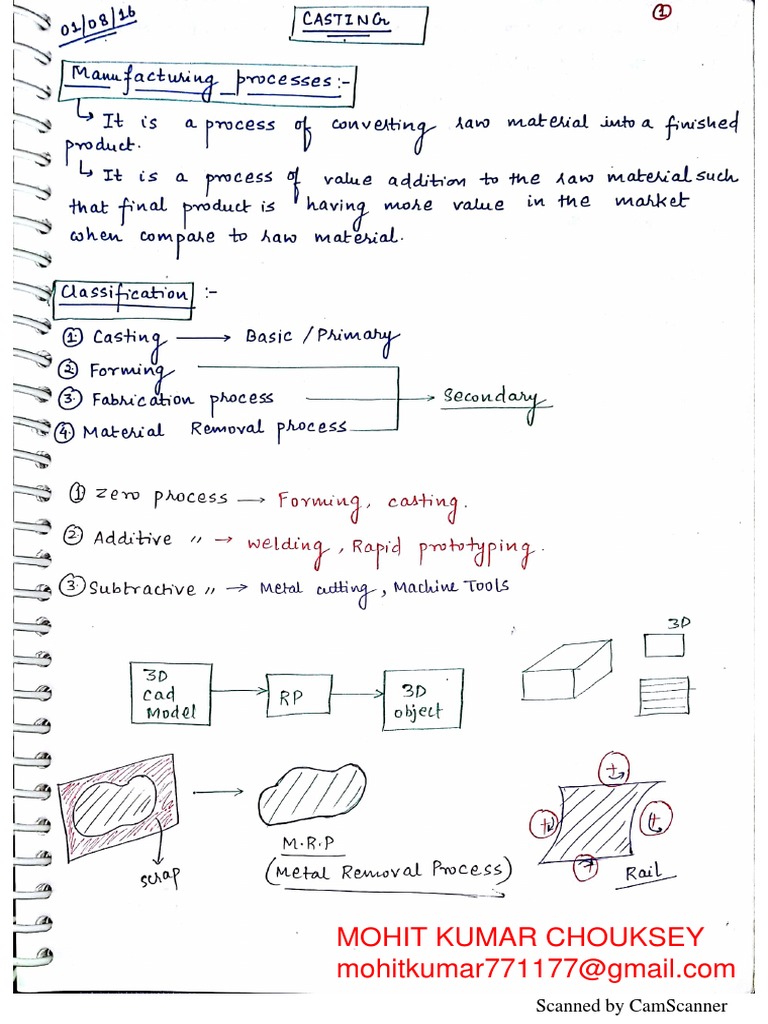 01/08/16
CASTING
1
Manufacturing processes:-
↳ It is a process of converting raw material into a finished
product.
↳ It is a process of value addition to the raw material such
that final product is having more value in the market
when compare to raw material.
Classification :-
① Casting → Basic / Primary
② Forming
③ Fabrication process → Secondary
④ Material Removal process
① Zero process → Forming, casting.
② Additive " → welding, Rapid prototyping.
③ Subtractive " → Metal cutting, Machine Tools
3D
3D
cad
Model
RP
3D
object
scrap
M.R.P
(Metal Removal Process)
Rail
MOHIT KUMAR CHOUKSEY
mohitkumar771177@gmail.com
Scanned by CamScanner